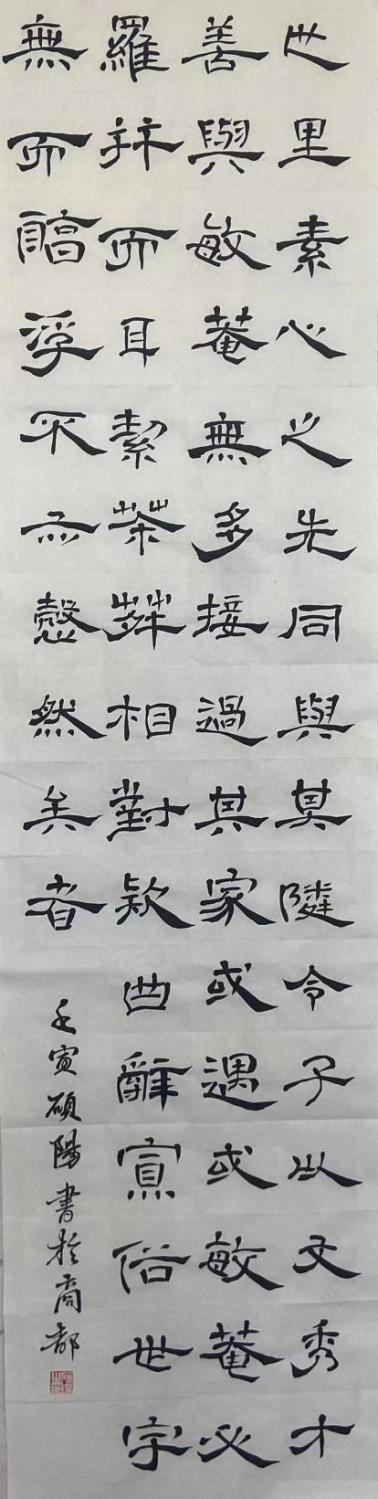 世里素心之先同與其隣令子以文秀才
善與敏菴無多接過其家或遇或敏菴必
羅拜而耳絜茶荈相對欵曲辭俗世字
無而浮不慤然者
壬寅碩陽書於商都